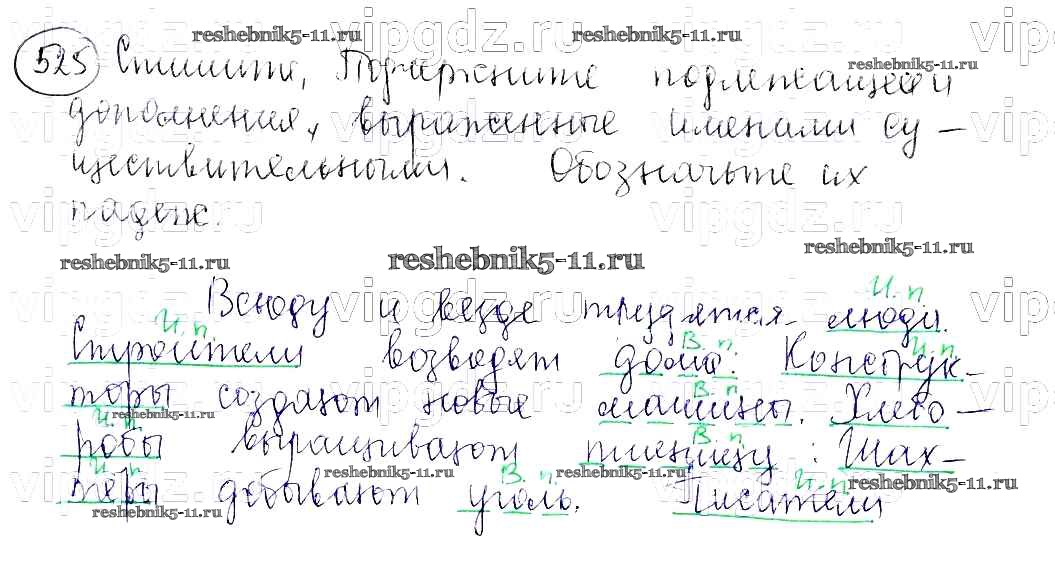 525 Спишите, Подчеркните подлежащее и
дополнения, выраженные именами су-
ществительными. Обозначьте их
падеж.
reshebnik5-11.ru
И. п.
Всюду и везде трудятся люди.
И. п. В. п. И. п.
Строители возводят дома. Конструк-
В. п.
торы создают новые машины. Хлебо-
И. п. В. п.
робы выращивают пшеницу. Шах-
И. п. В. п. И. п.
тёры добывают уголь. Писатели